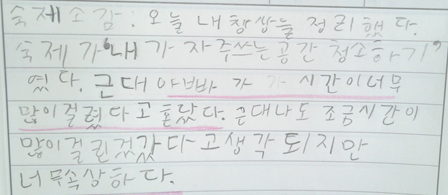 숙제소감: 오늘 내책상을 정리했다.
숙제가 '내가 자주쓰는공간 청소하기'
였다. 근대 아빠가 가 시간이너무
많이걸렸다고 혼났다. 근대나도 조금시간이
많이걸린것같다고생각 되지만
너무속상하다.